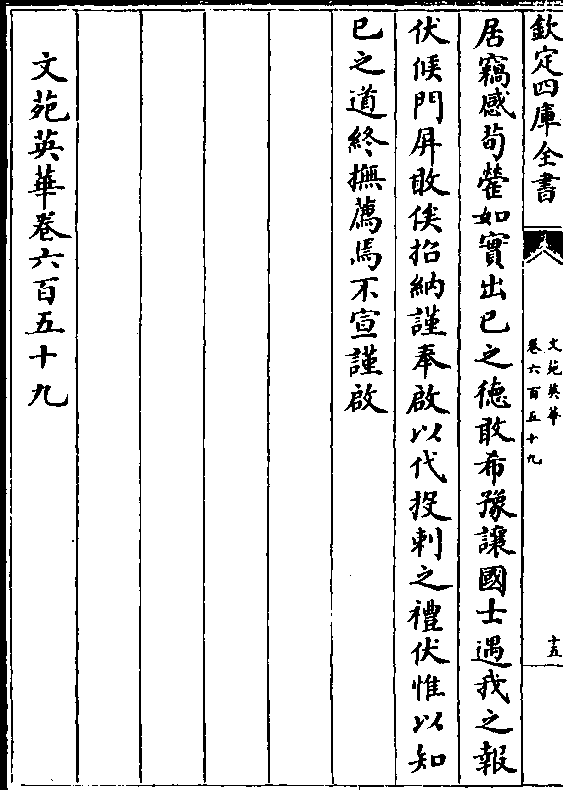 欽定四庫全書
文苑英華
卷六百五十九
十五
居竊感荀罃如實出已之徳敢希豫讓國士遇我之報
伏候門屏敢俟招納謹奉啟以代投刺之禮伏惟以知
已之道終撫薦焉不宣謹啟
文苑英華卷六百五十九